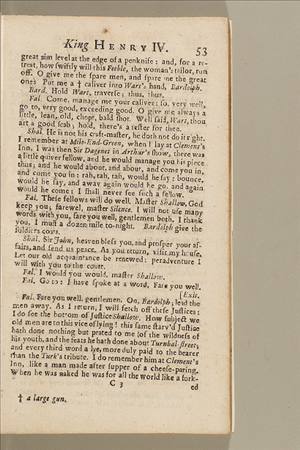 King HENRY IV. 53
great aim level at the edge of a penknife: and, for a re-
treat, how swiftly will this Feeble, the woman's tailor, run
off. O give me the spare men, and spare me the great
ones Put me a † caliver into Wart's hand, Bardolph.
Bard. Hold Wart, traverse; thus, thus.
Fal. Come, manage me your caliver: so, very well,
go to, very good, exceeding good. O give me always a
little, lean, old, chopt, bald shot. Well said, Wart, thou
art a good scab; hold, there's a tester for thee.
Shal. He is not his craft-master, he doth not do it right.
I remember at Mile-End-Green, when I lay at Clement's
Inn, I was then Sir Dagonet in Arthur's show, there was
a little quiver fellow, and he would manage you his piece
thus; and he would about, and about, and come you in,
and come you in: rah, tah, tah, would he say; bounce,
would he say, and away again would he go, and again
would he come: I shall never see such a fellow.
Fal. These fellows will do well. Master Shallow, God
keep you; farewel, master Silence. I will not use many
words with you, fare you well, gentlemen both. I thank
you, I must a dozen mile to-night. Bardolph give the
soldiers coats.
Shal. Sir John, heaven bless you, and prosper your af-
fairs, and send us peace. As you return, visit my house.
Let our old acquaintance be renewed: peradventure I
will with you to the court.
Fal. I would you would, master Shallow.
Fal. Go to: I have spoke at a word. Fare you well.
[Exit.
Fal. Fare you well, gentlemen. On, Bardolph, lead the
men away. As I return, I will fetch off these Justices:
I do see the bottom of Justice Shallow. How subject we
old men are to this vice of lying! this same starv'd Justice
hath done nothing but prated to me of the wildness of
his youth, and the feats he hath done about Turnbal-street,
and every third word a lye, more duly paid to the hearer
than the Turk's tribute. I do remember him at Clement's
Inn, like a man made after supper of a cheese-paring.
When he was naked he was for all the world like a fork-
C 3 ed
† a large gun.